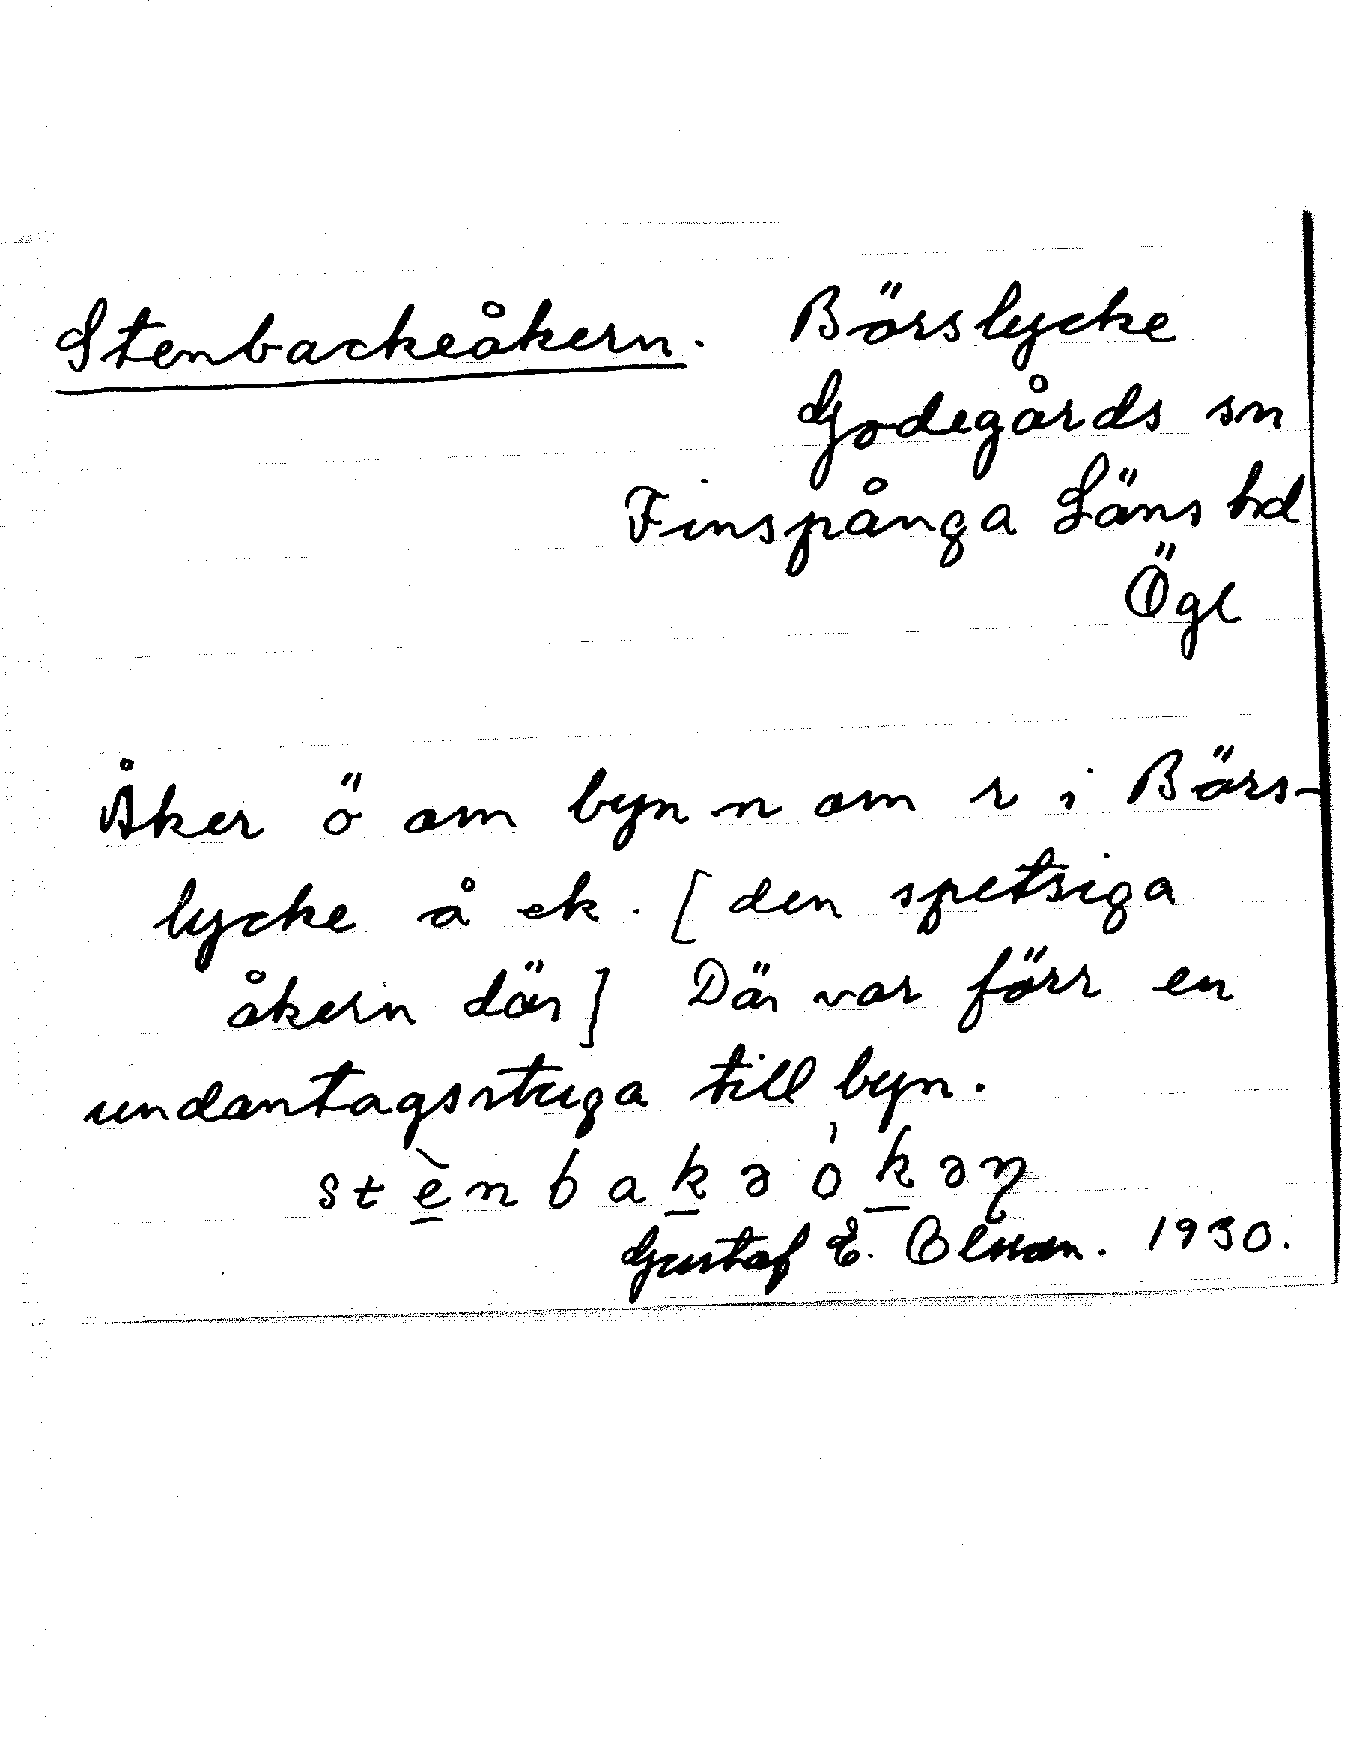 Stenbackeåkern. Börslycke
Godegårds sn
Finspånga Läns hd
Ögl
Åker ö om byn n om r i Börs-
lycke å ek. [den spetsiga
åkern där] Där var förr en
undantagsstuga till byn.
stè̠nbak̠əók̠əη
Gustaf E. Olsson. 1930.